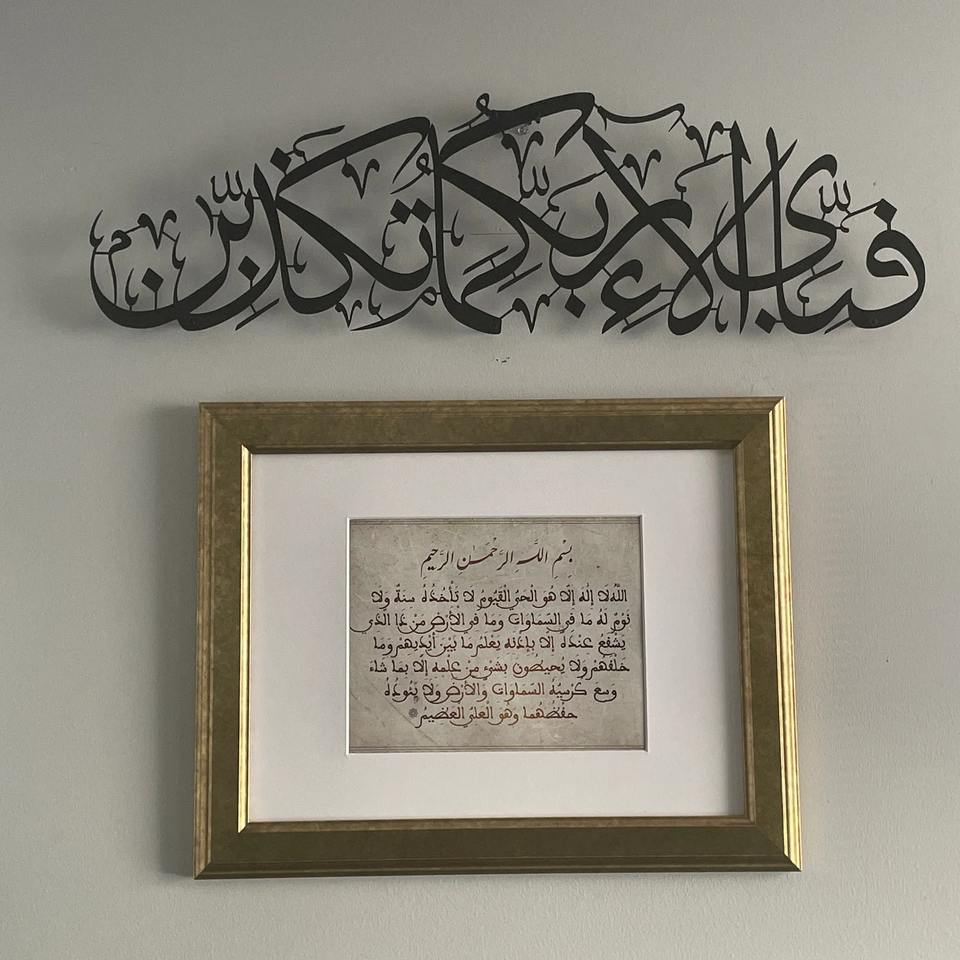 فبأي آلاء ربكما تكذبن
بِسْمِ اللَّهِ الرَّحْمَٰنِ الرَّحِيمِ
اللَّهُ لَا إِلَٰهَ إِلَّا هُوَ الْحَيُّ الْقَيُّومُ لَا تَأْخُذُهُ سِنَةٌ وَلَا
نَوْمٌ لَهُ مَا فِي السَّمَاوَاتِ وَمَا فِي الْأَرْضِ مَنْ ذَا الَّذِي
يَشْفَعُ عِنْدَهُ إِلَّا بِإِذْنِهِ يَعْلَمُ مَا بَيْنَ أَيْدِيهِمْ وَمَا
خَلْفَهُمْ وَلَا يُحِيطُونَ بِشَيْءٍ مِنْ عِلْمِهِ إِلَّا بِمَا شَاءَ
وَسِعَ كُرْسِيُّهُ السَّمَاوَاتِ وَالْأَرْضَ وَلَا يَئُودُهُ
حِفْظُهُمَا وَهُوَ الْعَلِيُّ الْعَظِيمُ